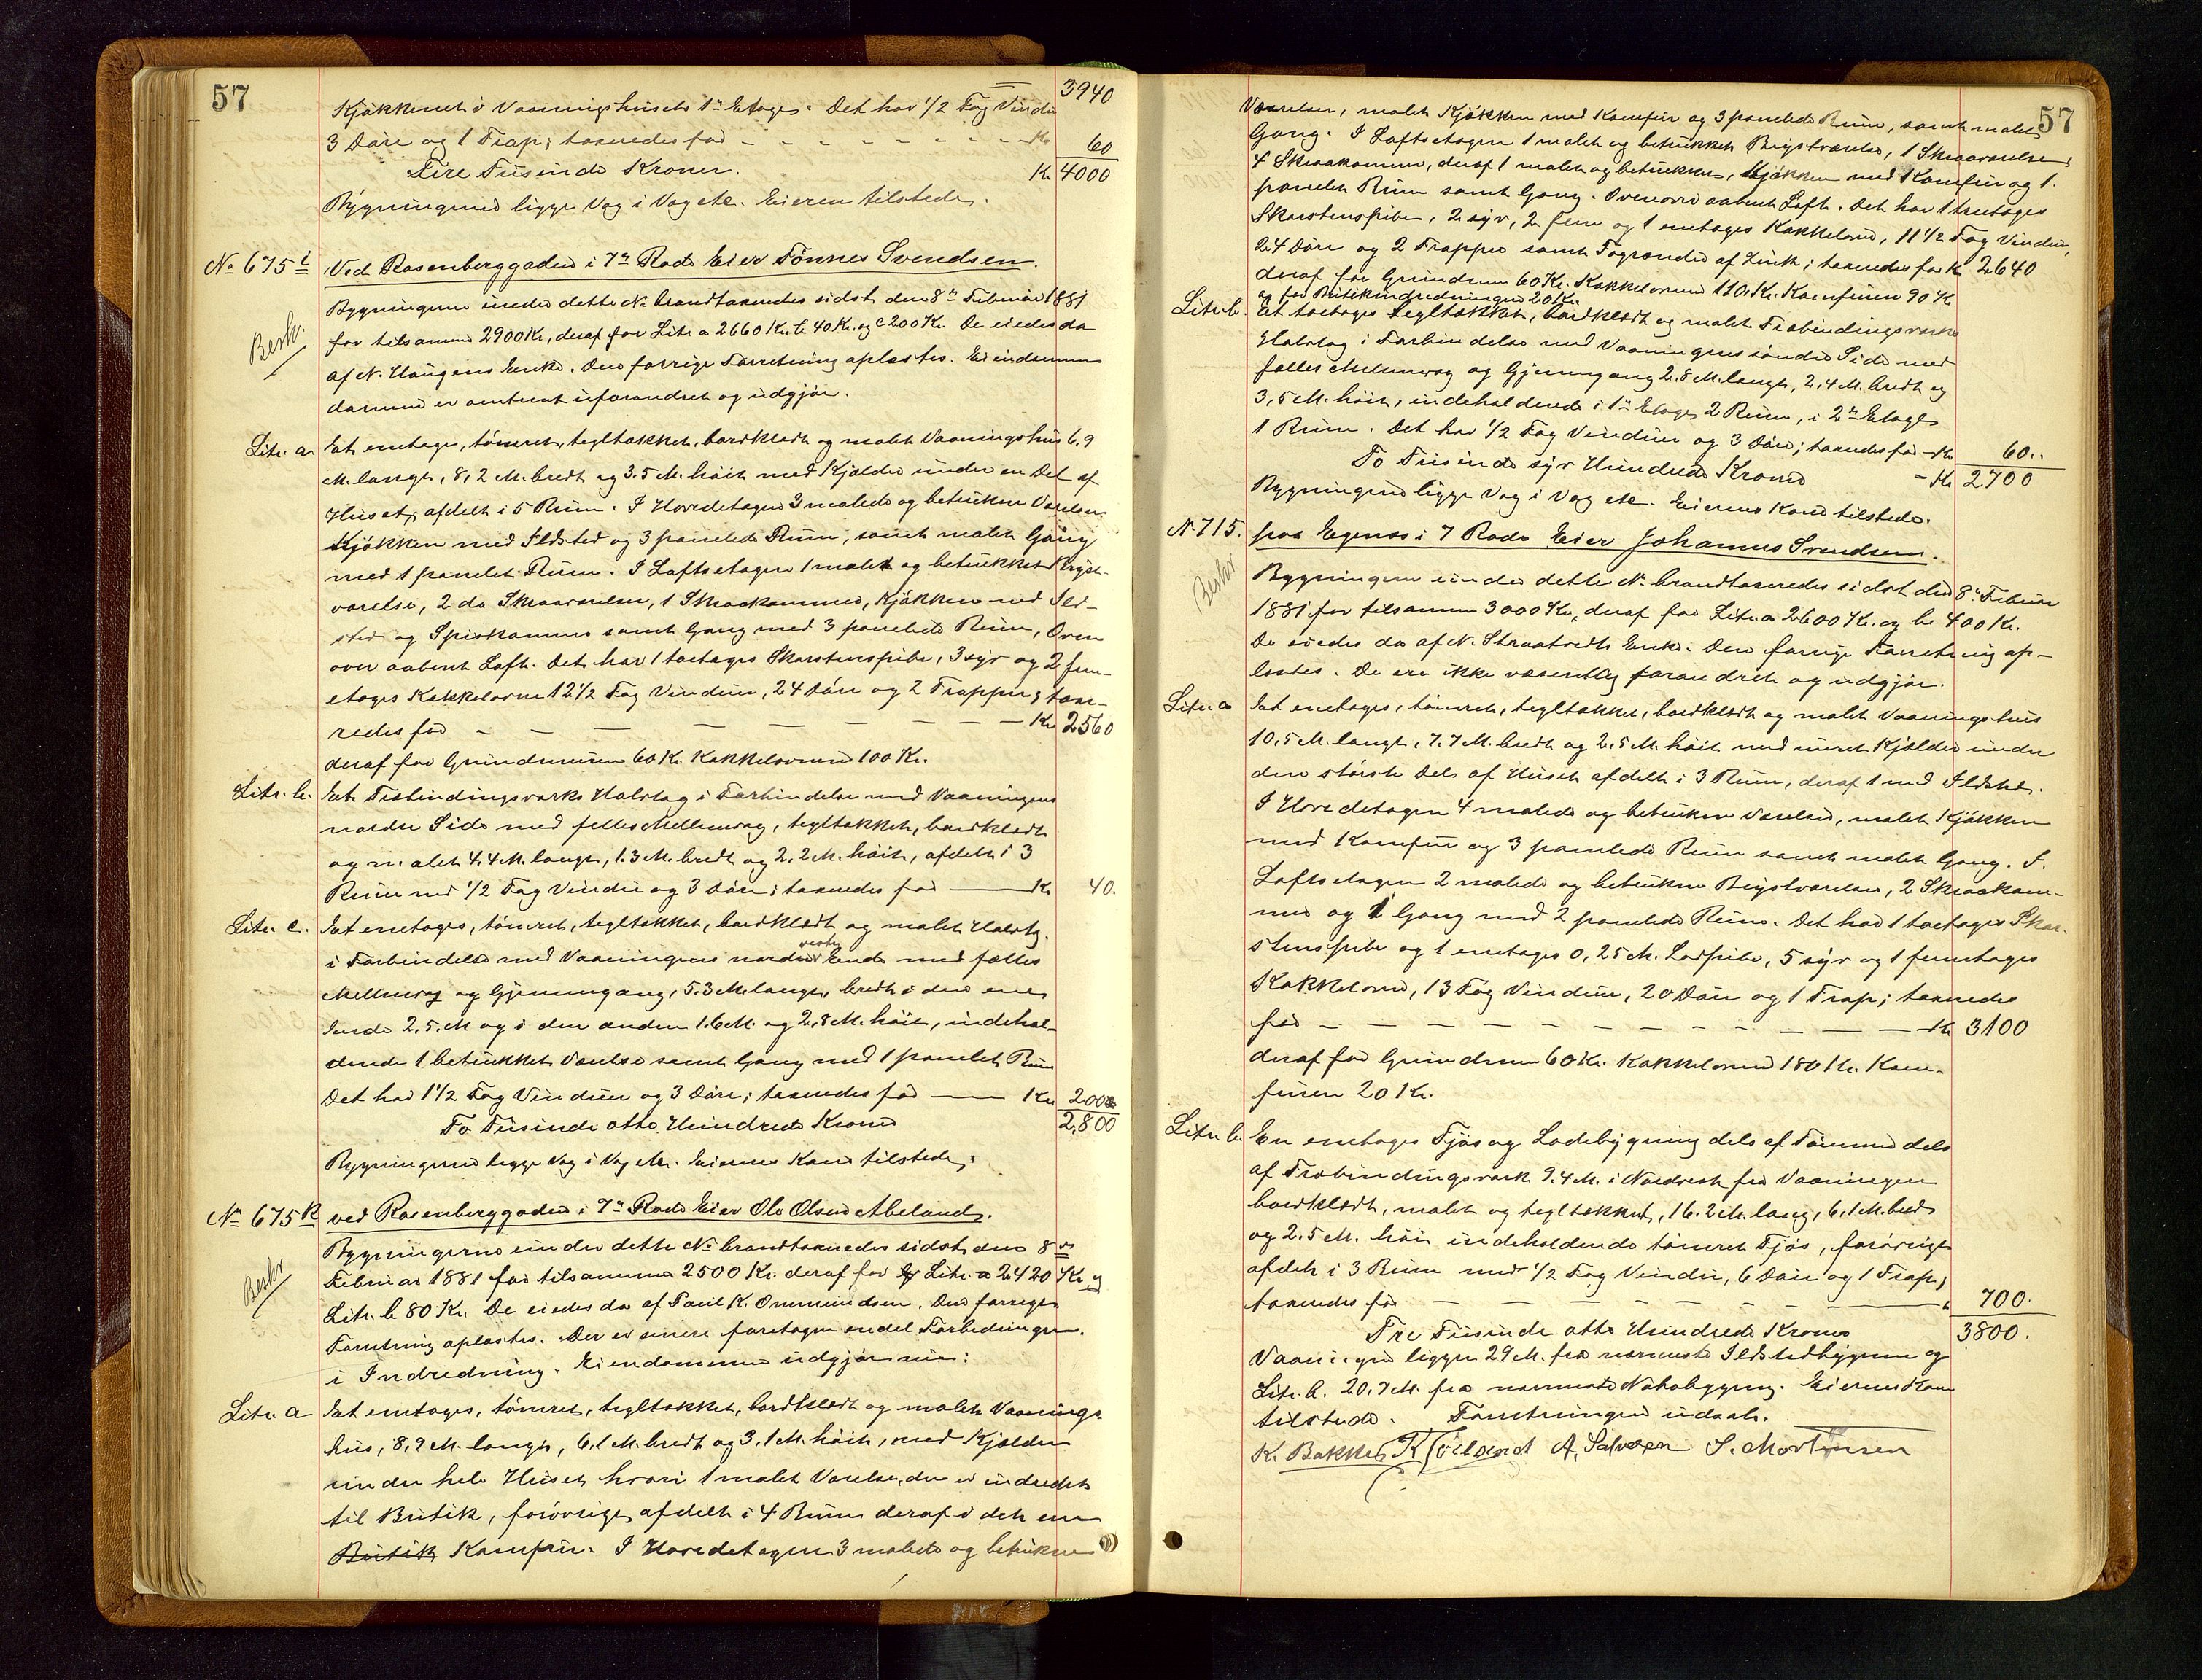 57
3940
Kjökkenet i Vaaningshusets 1ste Etage. Det har 1/2 Fag Vindu
3 Döre og 1 Trap; taxeredes for - - - Kr 60
Fire Tusinde Kroner. Kr 4000
Bygningerne ligge Væg i Væg etc. Eieren tilstede.
No 675 i Ved Rosenberggaden i 7de Rode Eier Tönnes Svendsen.
Beskr.
Bygningerne under dette No brandtaxeredes sidst den 8de Februar 1881
for tilsammen 2900 Kr, deraf for Litr. a 2660 Kr. b 40 Kr. og c 200 Kr. De eiedes da
af N. Haugens Enke. Den forrige Forretning oplæstes. Eiendommen
er omtrent uforandret og udgjör.
Litr. a. Et enetages, tömret, tegltækket, bordklædt og malet Vaaningshus 6,9
M. langt, 8,2 M. bredt og 3.5 M. höit med Kjælder under en Del af
Huset, afdelt i 5 Rum. I Hovedetagen 3 malede og betrukne Værelser
Kjökken med Ildsted og 3 panelede Rum, samt malet Gang
med 1 panelet Rum. I Loftsetagen 1 malet og betrukket Kvist-
værelse, 2 do Skraaværelser, 1 Skraakammer, Kjökken med Ild-
sted og Spiskammer samt Gang med 3 panelede Rum, Oven
over aabent Loft. Det har 1 toetages Skorstenspibe, 3 syv og 2 fem-
etages Kakkelovne 12 1/2 Fag Vinduer, 24 Döre og 2 Trapper; taxe-
redes for - - - Kr 2560
deraf for Grundmuren 60 Kr. Kakkelovnene 100 Kr.
Litr. b. Et Træbindingsværks Halvtag i Forbindelse med Vaaningens
nordre Side med fælles Mellemvæg, tegltækket, bordklædt
og malet 4,4 M. langt, 1.3 M. bredt og 2,2 M. höit, afdelt i 3
Rum med 1/2 Fag Vindu og 3 Döre; taxeredes for — Kr 40.
Litr. c. Et enetages, tömret, tegltækket, bordklædt og malet Halvtag
i Forbindelse med Vaaningens nordre vestre Ende med fælles
Mellemvæg og Gjennemgang, 5.3 M. langt, bredt i den ene
Ende 2,5 M og i den anden 1.6 M. og 2,8 M. höit, indehol-
dende 1 betrukket Værelse samt Gang med 1 panelet Rum
Det har 1 1/2 Fag Vinduer og 3 Döre; taxeredes for — Kr 200
To Tusinde otte Hundrede Kroner 2,800
Bygningerne ligge Væg i Væg etc. Eierens Kone tilstede.
No 675 k ved Rosenberggaden i 7de Rode Eier Ole Olsen Abeland.
Beskr
Bygningerne under dette No brandtaxeredes sidst den 8de
Februar 1881 for tilsammen 2500 Kr. deraf for Litr. a 2420 Kr og
Litr. b 80 Kr. De eiedes da af Paul K. Ommundsen. Den forrige
Forretning oplæstes. Der er senere foretagen endel Forbedringer
i Indredning. Eiendommen udgjör nu:
Litr. a Et enetages, tömret, tegltækket, bordklædt og malet Vaanings
hus, 8,9 M. langt, 6,1 M. bredt og 3,1 M. höit, med Kjælder
under hele Huset hvori 1 malet Værelse, der er indredet
til Butik, forövrigt afdelt i 4 Rum deraf i det ene
Butik Komfur. I Hovedetagen 3 malede og betrukne
57
Værelser, malet Kjökken med Komfur og 3 panelede Rum, samt malet
Gang. I Loftsetagen 1 malet og betrukket Kvistværelse, 1 Skraaværelse
4 Skraakammer, deraf 1 malet og betrukket, Kjökken med Komfur og 1
panelet Rum samt Gang. Ovenover aabent Loft. Det har 1 treetages
Skorstenspibe, 2 syv, 2 fem og 1 enetages Kakkelovne, 11 1/2 Fag Vinduer,
24 Döre og 2 Trapper samt Tagrender af Zink; taxeredes for Kr 2640
deraf for Grundmuren 60 Kr. Kakkelovnene 110 Kr. Komfuren 90 Kr
og for Butikindredningen 20 Kr.
Litr. b. Et toetages tegltækket, bordklædt og malet Træbindingsværks
Halvtag i Forbindelse med Vaaningens söndre Side med
fælles Mellemvæg og Gjennemgang 2,8 M. langt, 2,4 M. bredt og
3,5 M. höit, indeholdende i 1ste Etage 2 Rum, i 2den Etage
1 Rum. Det har 1/2 Fag Vinduer og 3 Döre; taxeredes for - Kr 60..
To Tusinde syv Hundrede Kroner - Kr 2700
Bygningerne ligge Væg i Væg etc. Eierens Kone tilstede.
No 715. paa Egenæs i 7 Rode Eier Johannes Svendsen.
Beskr
Bygningerne under dette No brandtaxeredes sidst den 8de Februar
1881 for tilsammen 3000 Kr, deraf for Litr. a 2600 Kr. og b 400 Kr.
De eiedes da af N. Straatvedts Enke. Den forrige Forretning op-
læstes. De ere ikke væsentlig forandret og udgjör.
Litr. a Et enetages, tömret, tegltækket, bordklædt og malet Vaaningshus
10,5 M. langt, 7.7 M. bredt og 2,5 M. höit med muret Kjælder under
den störste Dels af Huset afdelt i 3 Rum, deraf 1 med Ildsted.
I Hovedetagen 4 malede og betrukne Værelser, malet Kjökken
med Komfur og 3 panelede Rum samt malet Gang. I
Loftsetagen 2 malede og betrukne Kvistværelser, 2 Skraakam-
mer og 1 Gang med 2 panelede Rum. Det har 1 toetages Skor-
stenspibe og 1 enetages 0,25 M. Lodpibe, 5 syv og 1 femetages
Kakkelovne, 13 Fag Vinduer, 20 Döre og 1 Trap; taxeredes
for - - - Kr 3100
deraf for Grundmuren 60 Kr. Kakkelovnene 180 Kr. Kom-
furen 20 Kr.
Litr. b. En enetages Fjös og Ladebygning dels af Tömmer dels
af Træbindingsværk 9.4 M. i Nordvest fra Vaaningen
bordklædt, malet og tegltækket, 16.2 M. lang, 6,1 M. bred
og 2.5 M. höi indeholdende tömret Fjös, forövrigt
afdelt i 3 Rum med 1/2 Fag Vindu, 6 Döre og 1 Trap;
taxeredes for - - - " 700.
Tre Tusinde otte Hundrede Kroner 3800.
Vaaningen ligger 29 M. fra nærmeste Ildstedbygning og
Litr. b. 20.7 M. fra nærmeste Nabobygning. Eierens Kone
tilstede. Forretningen udsat.
K. Bakke A. Salvesen S. Mortensen